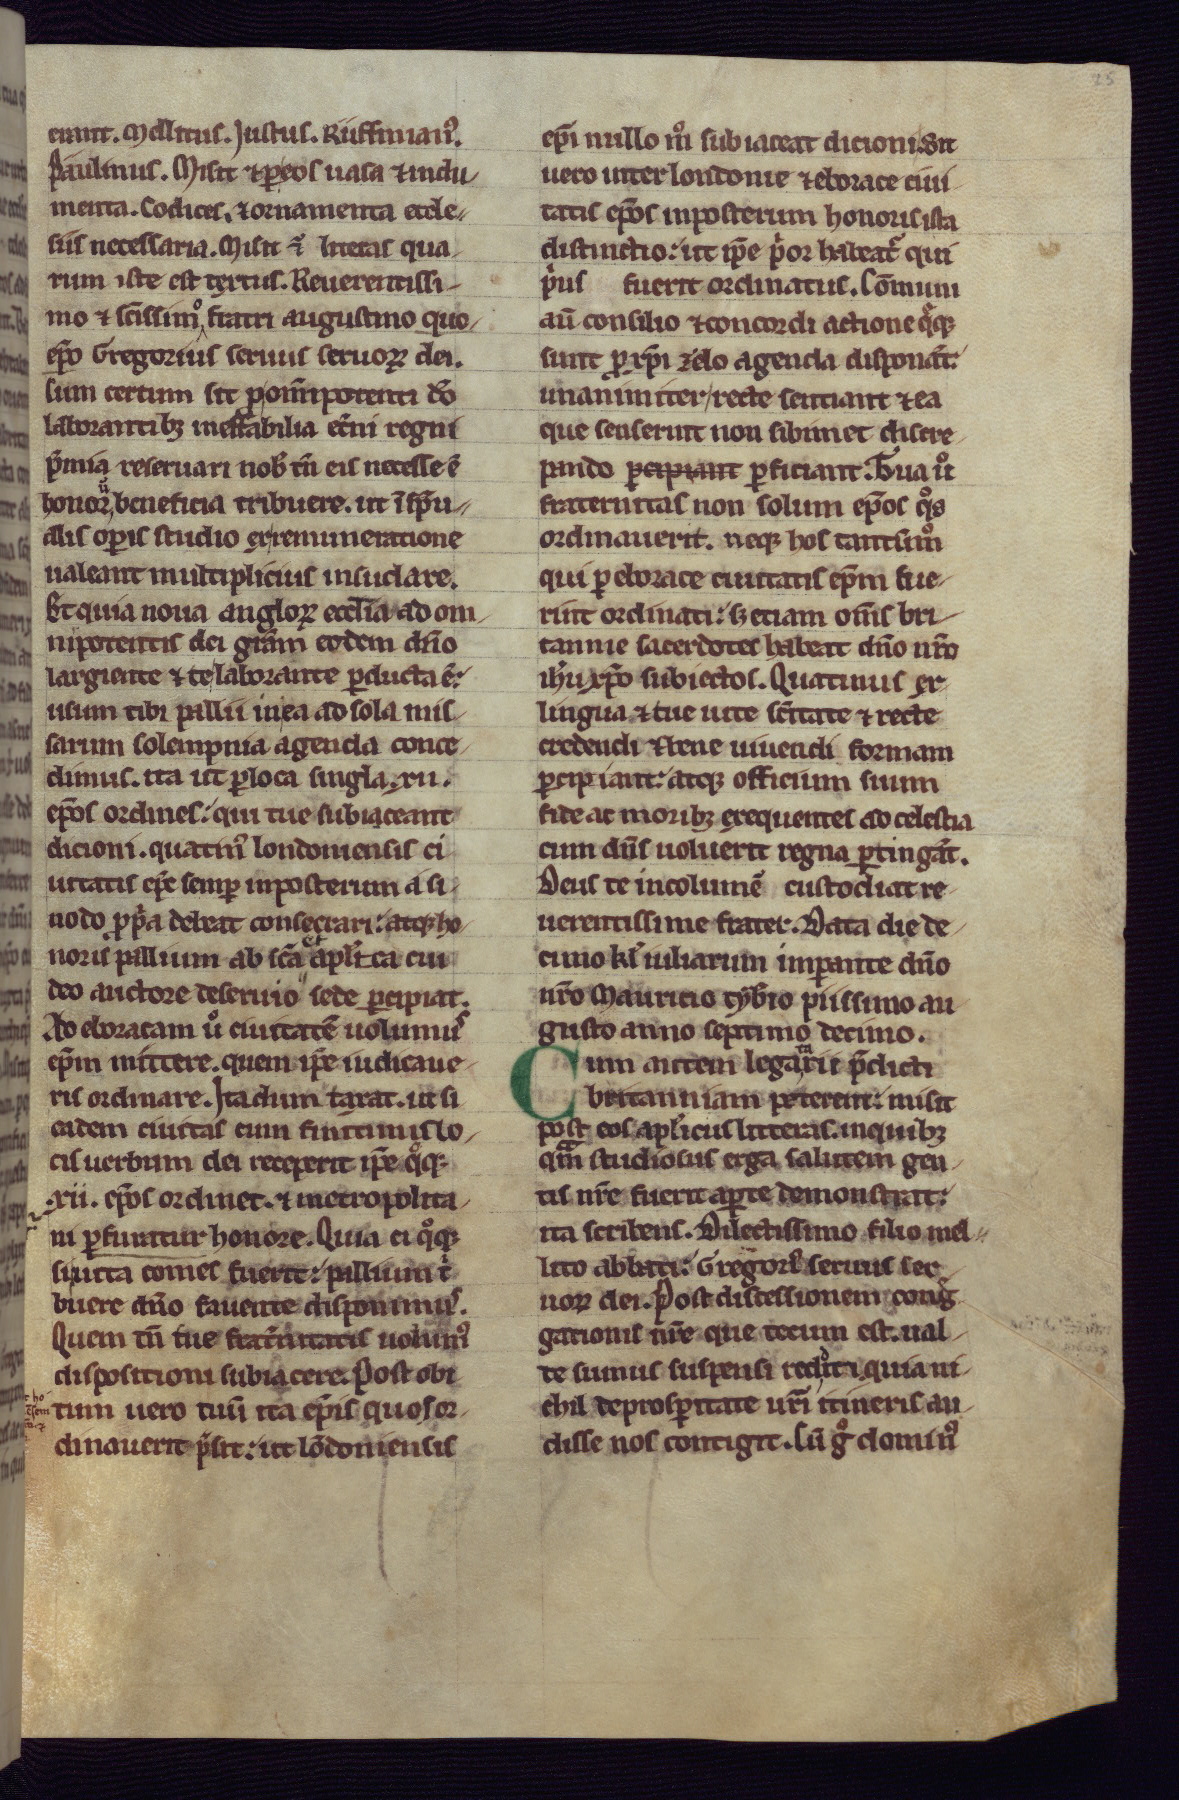 25
erunt. Mellitus. Justus. Ruffinianꝰ.
Paulinus. Misit ⁊ ꝑ eos uasa ⁊ indu
menta. Codices. ⁊ ornamenta eccle-
siis necessaria. Misit ⁊
litteras qua
rum iste est textus. Reuerentissi-
mo ⁊ sc̄issimo fratri augustino quo-
ep̄o Gregorius seruus seruoꝝ dei.
Cum certum sit ꝓ om̄ipotenti dō
laborantibꝫ ineffabilia et̄ni regni
p̄mia reseruari nob̄ tn̄ eis necesse ē
honoꝝ beneficia tribuere. ut ī sp̄u-
alis oꝑis studio ex remuneratione
ualeant multiplicius insudare.
Et quia noua angloꝝ eccl̄ia ad om
nipotentis dei gr̄am eodem dn̄o
largiente ⁊ te laborante ꝑducta ē:
usum tibi pallii in ea ad sola mis-
sarum solempnia agenda conce-
dimus. ita ut ꝑ loca singla. xii.
ep̄os ordines: qui tue subiaceant
dicioni. quatinꝰ londoniensis ci
uitatis ep̄c semꝑ inposterum a si-
nodo ꝓp̄a debeat consecrari: atqꝫ ho-
noris pallium ab sc̄a et apl̄ica cui
deo auctore deseruio sede ꝑcipiat.
Ad eboracam u̾ ciuitatē uolumus
ep̄m mittere. quem ip̄e iudicaue-
ris ordinare. Ita dum taxat. ut si
eadem ciuitas cum finitimis lo-
cis uerbum dei receperit ip̄e qͦqꝫ
.xii. ep̄os ordinet. ⁊ metropolita-
ni ꝑfuratur honore. Quia ei qͦqꝫ
si uita comes fuerit: pallium tͥ
buere dn̄o fauente disponimus.
Quem tn̄ tue frat̄nitatis uolumꝰ
dispositioni subiacere. Post obi
tum uero tuū ita ep̄is quos or
dinauerit p̄sit: ut lōdoniensis
ep̄i nullo mͦ subiaceat dicioni. Sit
uero inter londonie ⁊ eborace ciui-
tatis ep̄os inposterum honoris ista
distinctio: ut ip̄e pͥor habeat̾ qui
pͥus fuerit ordinatus. Cōmuni
aū consilio ⁊ concordi actione qͤqꝫ
sunt ꝓ xp̄i zelo agenda disponāt:
unanimiter recte sentiant ⁊ ea
que senserint non sibimet discre-
pando ꝑcipiant ꝑficiant. Tua u̾
fraternitas non solum ep̄os qͦs
ordinauerit. neqꝫ hos tantummͦ
qui ꝑ eborace ciuitatis ep̄m fue-
rint ordinati: sꝫ etiam om̄s bri-
tannie sacerdotes habeat dn̄o nr̄o
ih̄u xp̄o subiectos. Quatinus ex-
lingua ⁊ tue uite sc̄itate ⁊ recte
credendi ⁊ bene uiuendi formam
ꝑcipiant: atqꝫ officium suum
fide ac moribꝫ exequentes ad celestia
cum dn̄s uoluerit regna ꝑtingāt.
Deus te incolumē custodiat re-
uerentissime frater. Data die de-
cimo kl̄ iuliarum imꝑante dn̄o
nr̄o Mauricio tyb̄io piissimo au
gusto anno septimo decimo.
Cum autem legatarii p̄dicti
britanniam peterent: misit
post eos apl̄icus litteras. in quibꝫ
qm̄ studiosus erga salutem gen-
tis nr̄e fuerit aꝑte demonstrat:
ita scribens. Dilectissimo filio mel-
lito abbati: Gregoriꝰ seruus ser-
uoꝝ dei. Post discessionem cong̾
gationis nr̄e que tecum est. ual-
de sumus suspensi redditi, quia ni-
chil de prosꝑitate ur̄i itineris au-
disse nos contigit. Cū gͦ dominꝰ